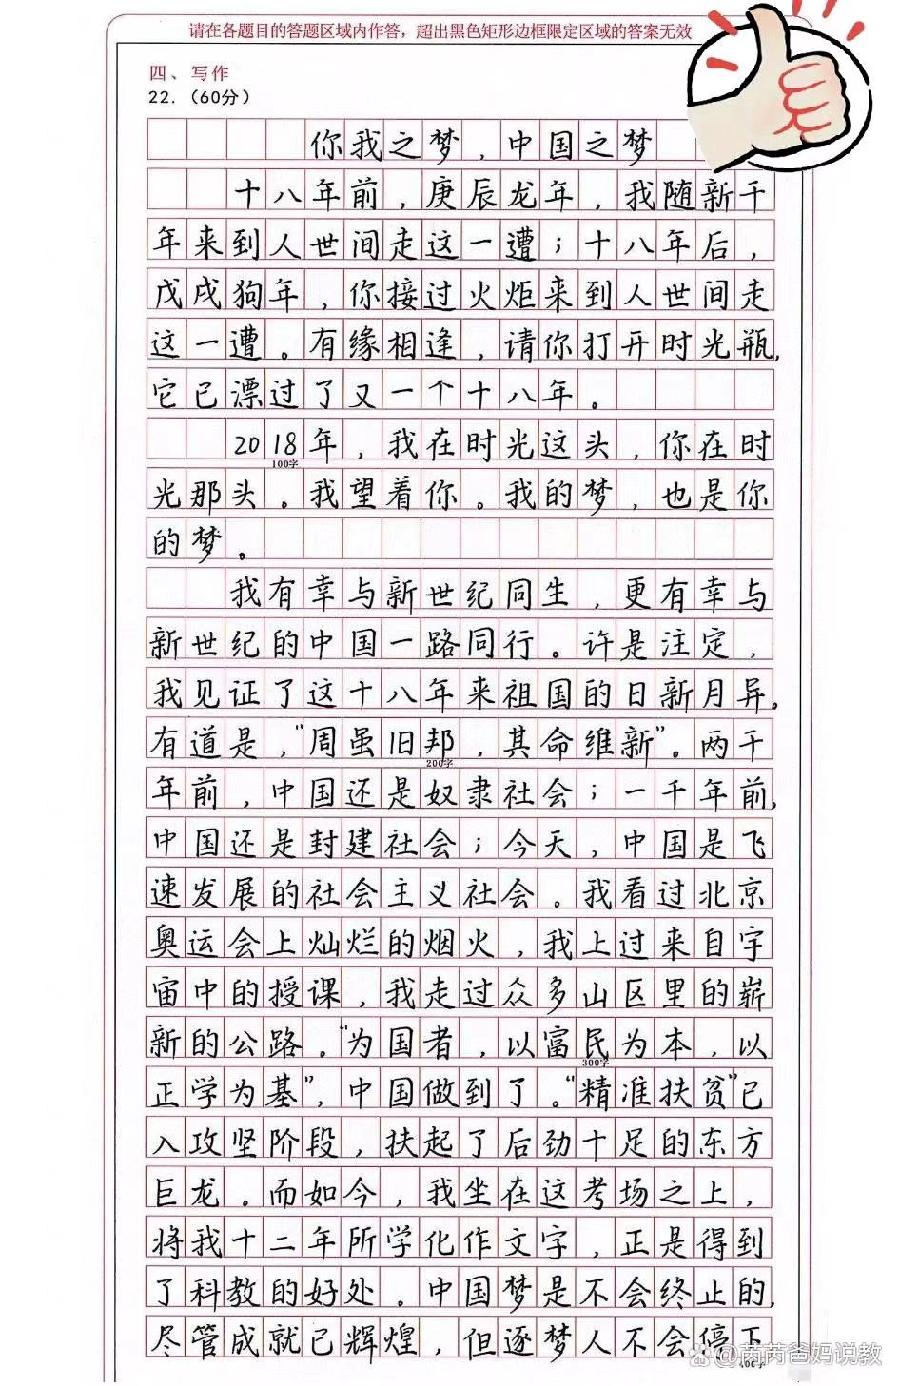 请在各题目的答题区域内作答，超出黑色矩形边框限定区域的答案无效
四、写作
22.（60分）
你我之梦，中国之梦
十八年前，庚辰龙年，我随新千
年来到人世间走这一遭；十八年后，
戊戌狗年，你接过火炬来到人世间走
这一遭。有缘相逢，请你打开时光瓶，
它已漂过了又一个十八年。
2018年，我在时光这头，你在时
100字
光那头。我望着你。我的梦，也是你
的梦。
我有幸与新世纪同生，更有幸与
新世纪的中国一路同行。许是注定，
我见证了这十八年来祖国的日新月异，
有道是，“周虽旧邦，其命维新”。两千
200字
年前，中国还是奴隶社会；一千年前，
中国还是封建社会；今天，中国是飞
速发展的社会主义社会。我看过北京
奥运会上灿烂的烟火，我上过来自宇
宙中的授课，我走过众多山区里的崭
新的公路。“为国者，以富民为本，以
300字
正学为基”，中国做到了。“精准扶贫”已
入攻坚阶段，扶起了后劲十足的东方
巨龙。而如今，我坐在这考场之上，
将我十二年所学化作文字，正是得到
了科教的好处。中国梦是不会终止的，
尽管成就已辉煌，但逐梦人不会停下
400字
@芮芮爸妈说教